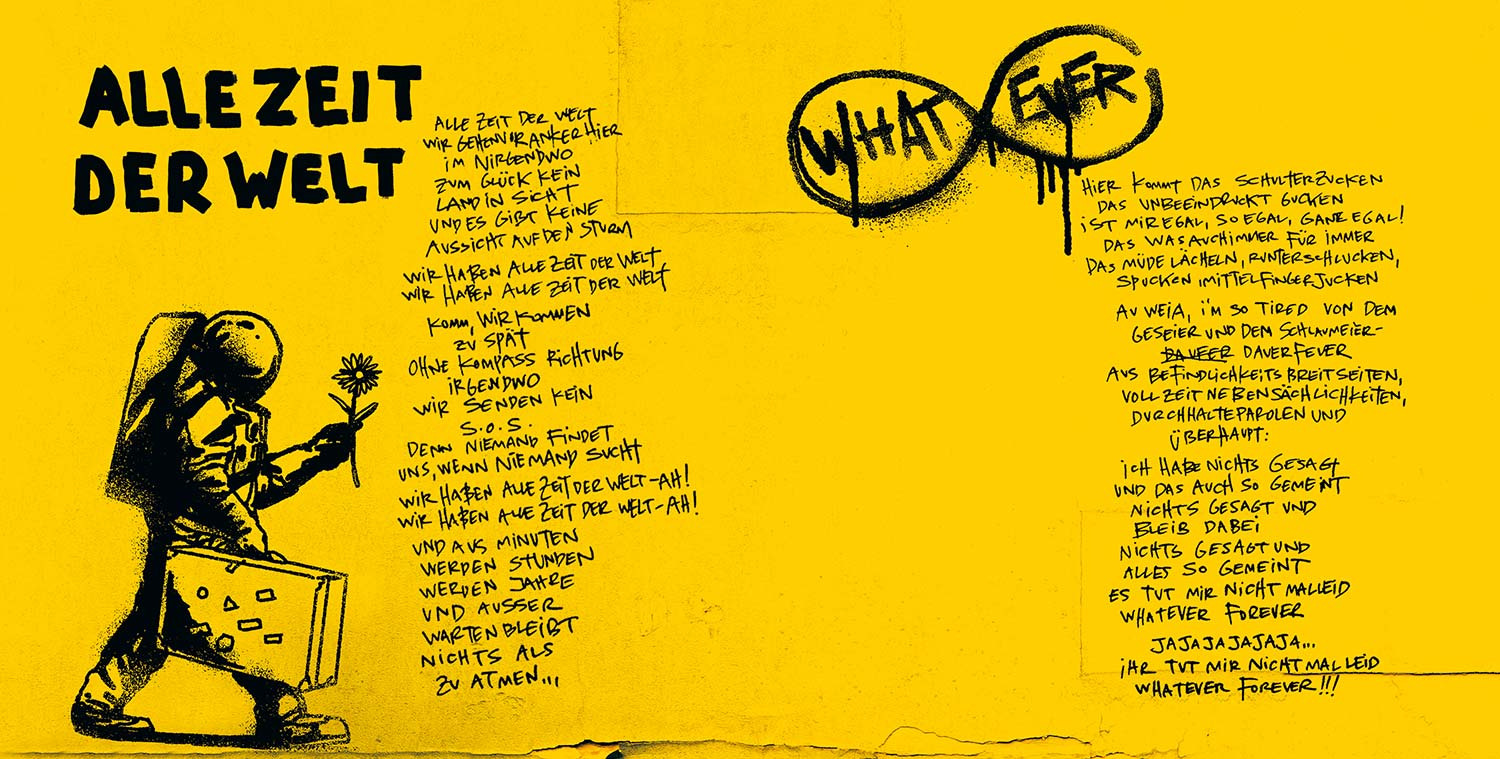 ALLE ZEIT
DER WELT
ALLE ZEIT DER WELT
WIR GEHEN VOR ANKER HIER
IM NIRGENDWO
ZUM GLÜCK KEIN
LAND IN SICHT
UND ES GIBT KEINE
AUSSICHT AUF DEN STURM
WIR HABEN ALLE ZEIT DER WELT
WIR HABEN ALLE ZEIT DER WELT
KOMM, WIR KOMMEN
ZU SPÄT
OHNE KOMPASS RICHTUNG
IRGENDWO
WIR SENDEN KEIN
S.O.S.
DENN NIEMAND FINDET
UNS, WENN NIEMAND SUCHT
WIR HABEN ALLE ZEIT DER WELT-AH!
WIR HABEN ALLE ZEIT DER WELT-AH!
UND AUS MINUTEN
WERDEN STUNDEN
WERDEN JAHRE
UND AUSSER
WARTEN BLEIBT
NICHTS ALS
ZU ATMEN...
WHAT EVER
HIER KOMMT DAS SCHULTERZUCKEN
DAS UNBEEINDRUCKT GUCKEN
IST MIR EGAL, SO EGAL, GANZ EGAL!
DAS WAS AUCH IMMER FÜR IMMER
DAS MÜDE LÄCHELN, RUNTERSCHLUCKEN,
SPUCKEN, MITTELFINGERJUCKEN
AU WEIA, I'M SO TIRED VON DEM
GESEIER UND DEM SCHLAUMEIER-
DAUERFEUER
AUS BEFINDLICHKEITSBREITSEITEN,
VOLLZEITNEBENSÄCHLICHKEITEN,
DURCHHALTEPAROLEN UND
ÜBERHAUPT:
ICH HABE NICHTS GESAGT
UND DAS AUCH SO GEMEINT
NICHTS GESAGT UND
BLEIB DABEI
NICHTS GESAGT UND
ALLES SO GEMEINT
ES TUT MIR NICHT MAL LEID
WHATEVER FOREVER
JAJAJAJAJAJA...
IHR TUT MIR NICHT MAL LEID
WHATEVER FOREVER!!!